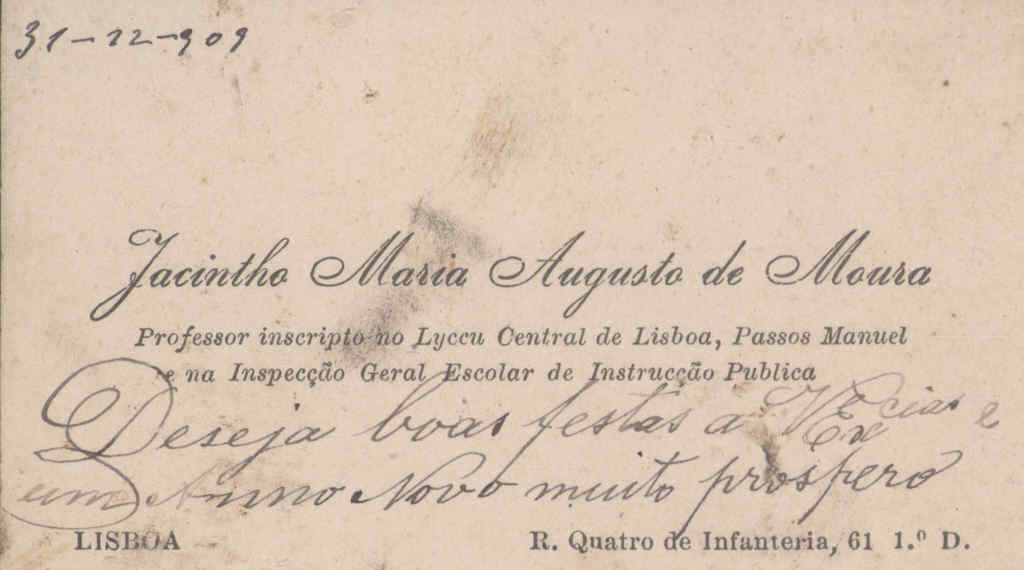 31-12-909
Jacintho Maria Augusto de Moura
Professor inscripto no Lyceu Central de Lisboa, Passos Manuel
e na Inspecção Geral Escolar de Instrucção Publica
Deseja boas festas a V. Ex.cias e
um Anno Novo muito prospero
LISBOA
R. Quatro de Infanteria, 61 1.º D.